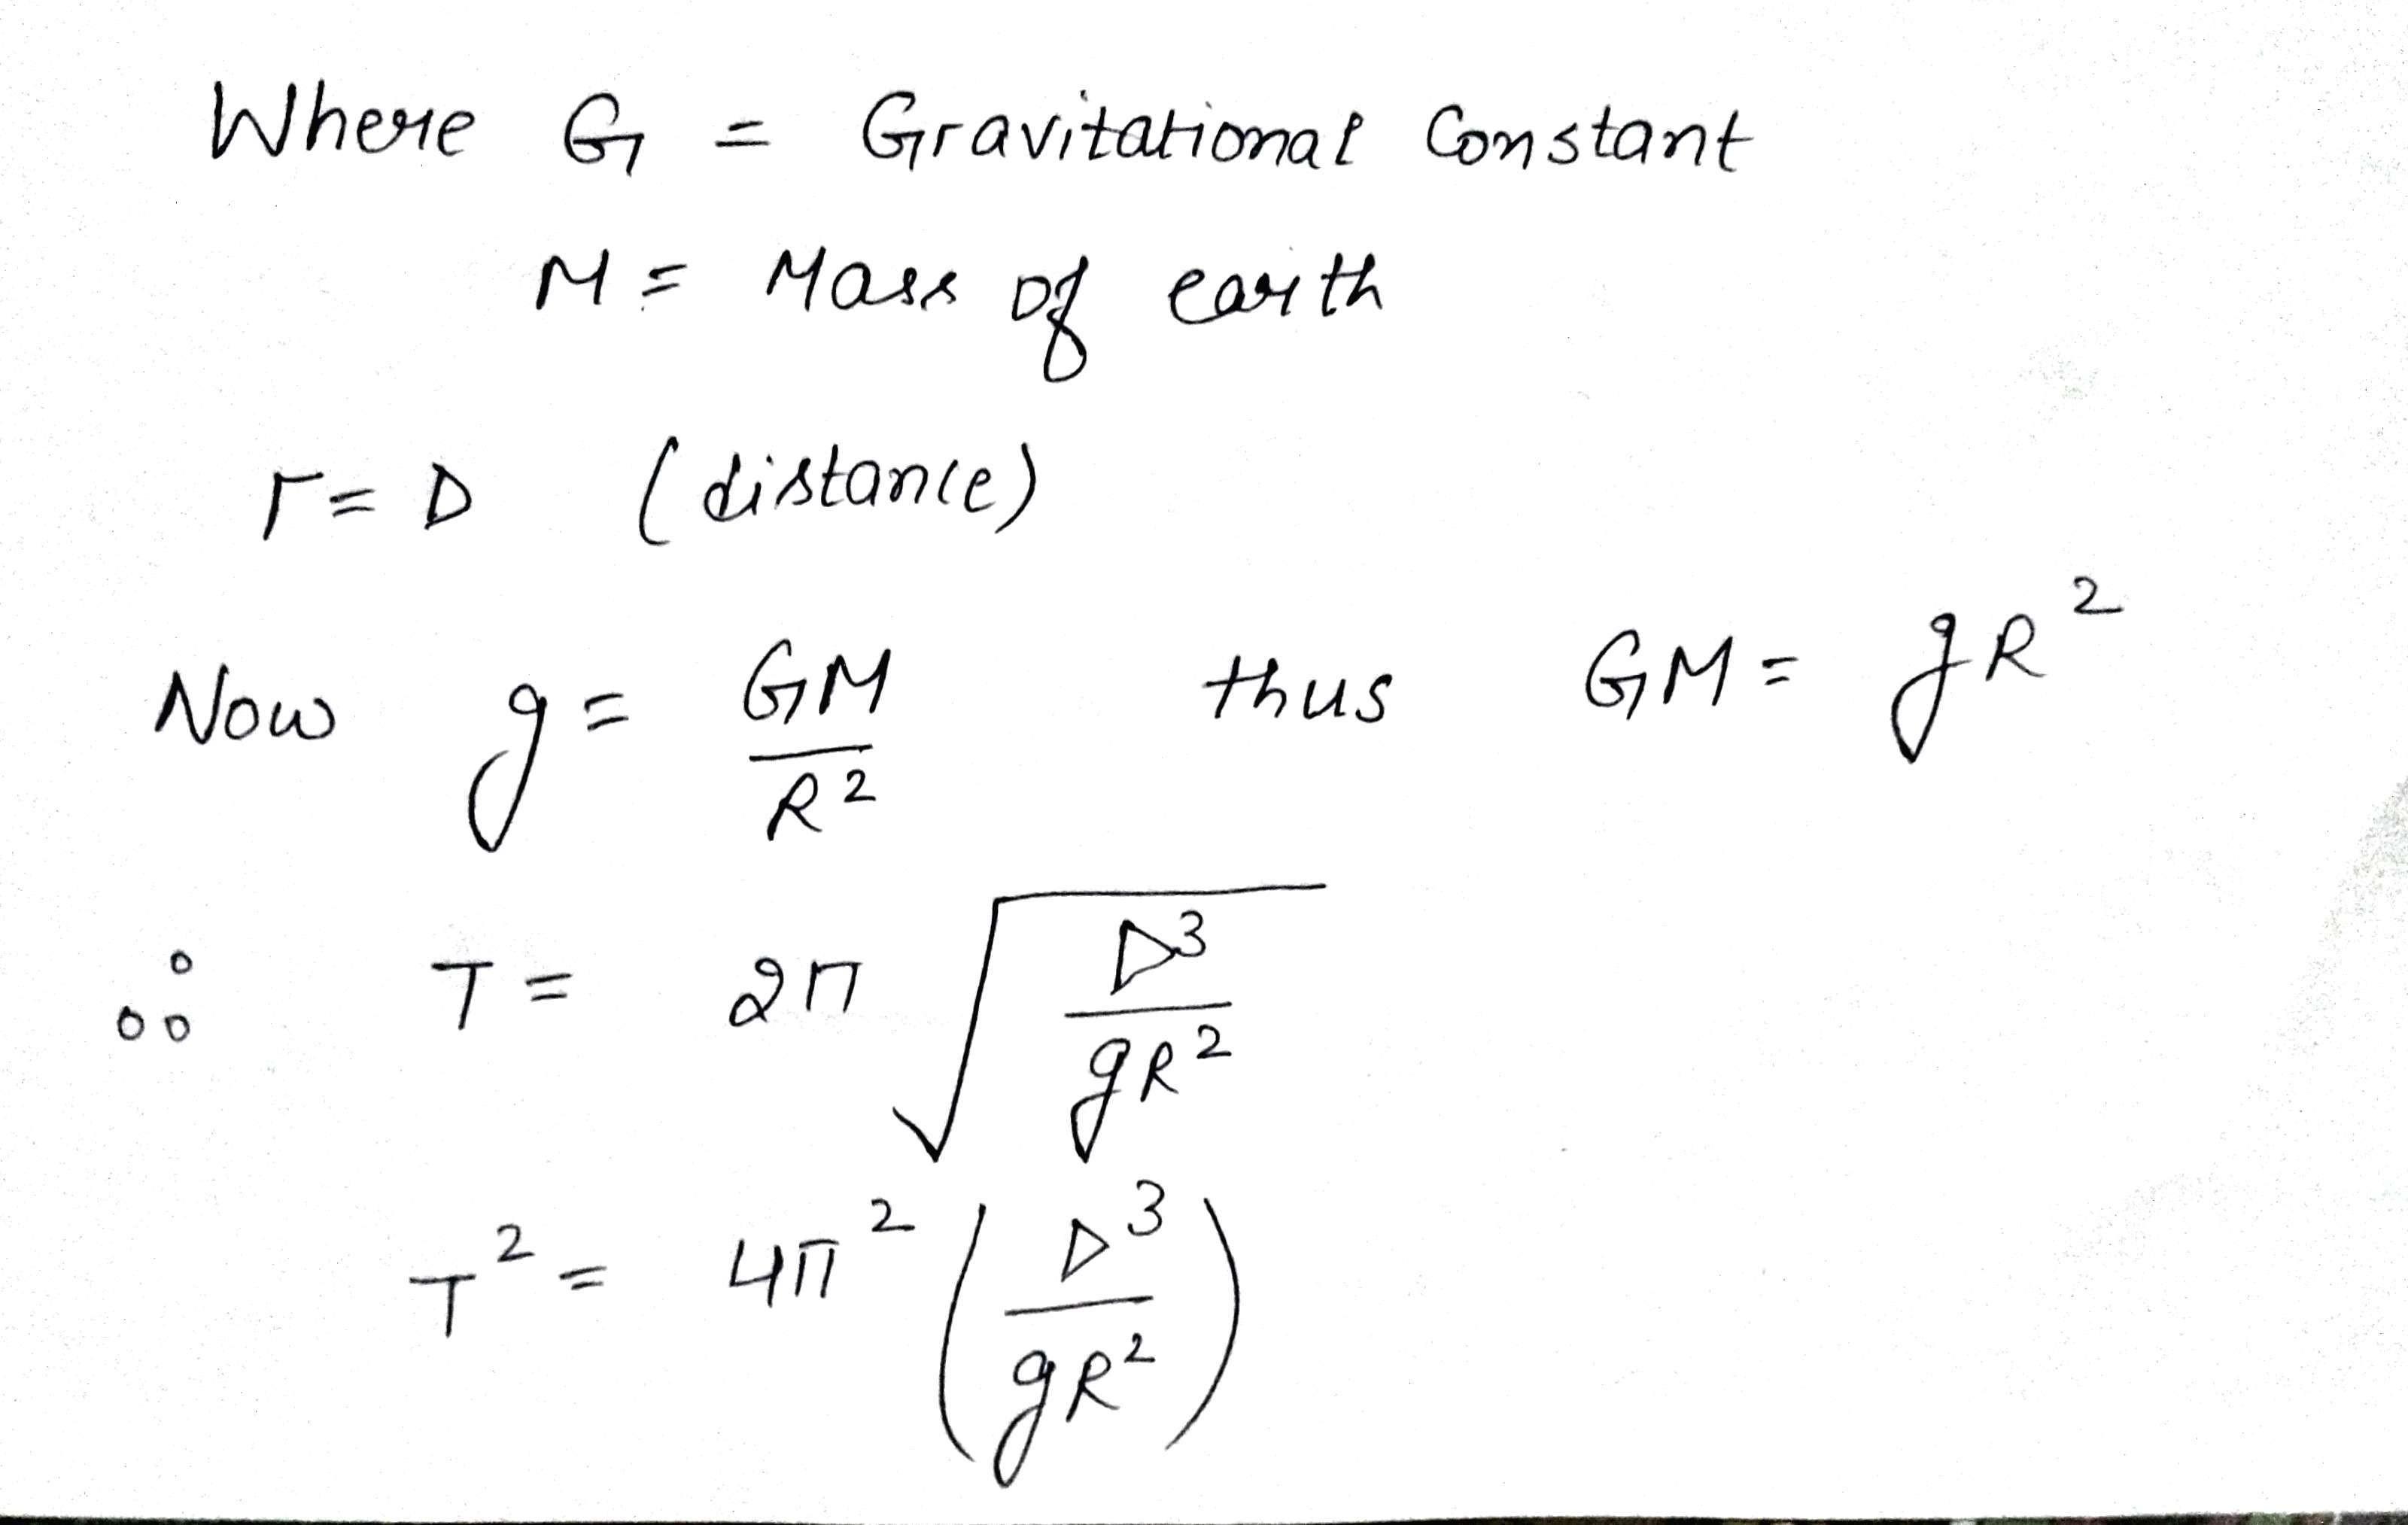 Where G = Gravitational Constant
M = Mass of earth
r = D (distance)
Now g = GM/R² thus GM = gR²
∴ T = 2π √(D³/gR²)
T² = 4π² (D³/gR²)